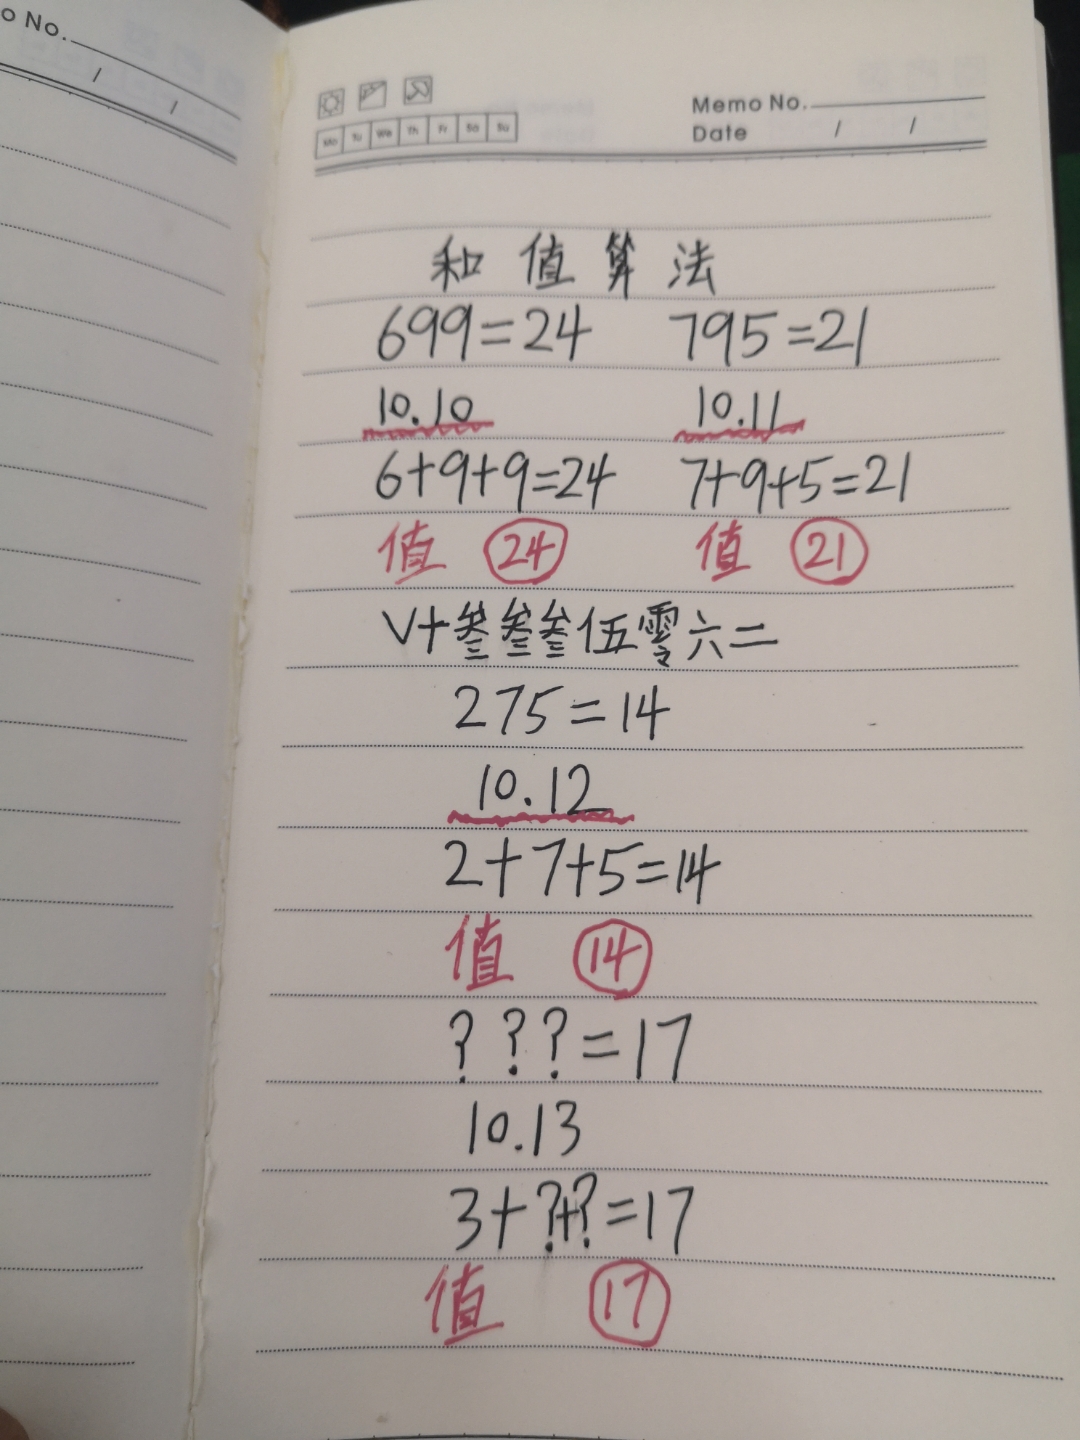 o No.
/ /
Memo No.
Mo Tu We Th Fr Sa Su
Date / /
和值算法
699=24 795=21
10.10 10.11
6+9+9=24 7+9+5=21
值 24 值 21
V+叁叁叁伍零六二
275=14
10.12
2+7+5=14
值 14
? ? ?=17
10.13
3+?+?=17
值 17